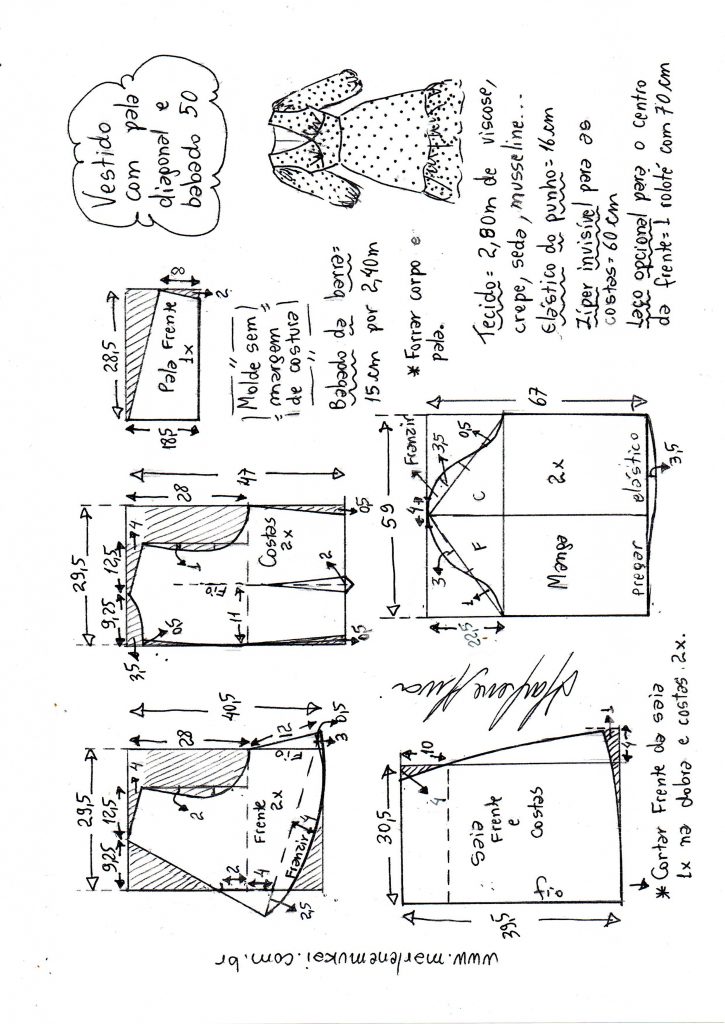 Vestido
com pala
diagonal e
babado 50
28,5
8
2
18,5
Pala Frente
1x
Molde sem
margem
de costura
Babado da barra=
15 cm por 2,40m
* Forrar corpo e
pala.
Tecido = 2,80m de viscose,
crepe, seda, musseline...
Elástico do punho = 16 cm
Zíper invisível para as
costas = 60 cm
Laço opcional para o centro
da frente = 1 roloté com 70 cm
29,5
9,25
12,5
4
3,5
0,5
28
47
1
Costas
2x
Fio
11
2
0,5
0,5
59
Franzir
4
3,5
0,5
3
1
22,5
F
C
Manga
2x
67
pregar elástico
3,5
29,5
9,25
12,5
4
28
40,5
2
Frente
2x
Fio
12
0,5
3
2
4
Franzir
4
2,5
30,5
10
4
Saia
Frente
e
Costas
Fio
39,5
1
4
* Cortar Frente da saia
1x na dobra e costas 2x.
www.marlenemukai.com.br